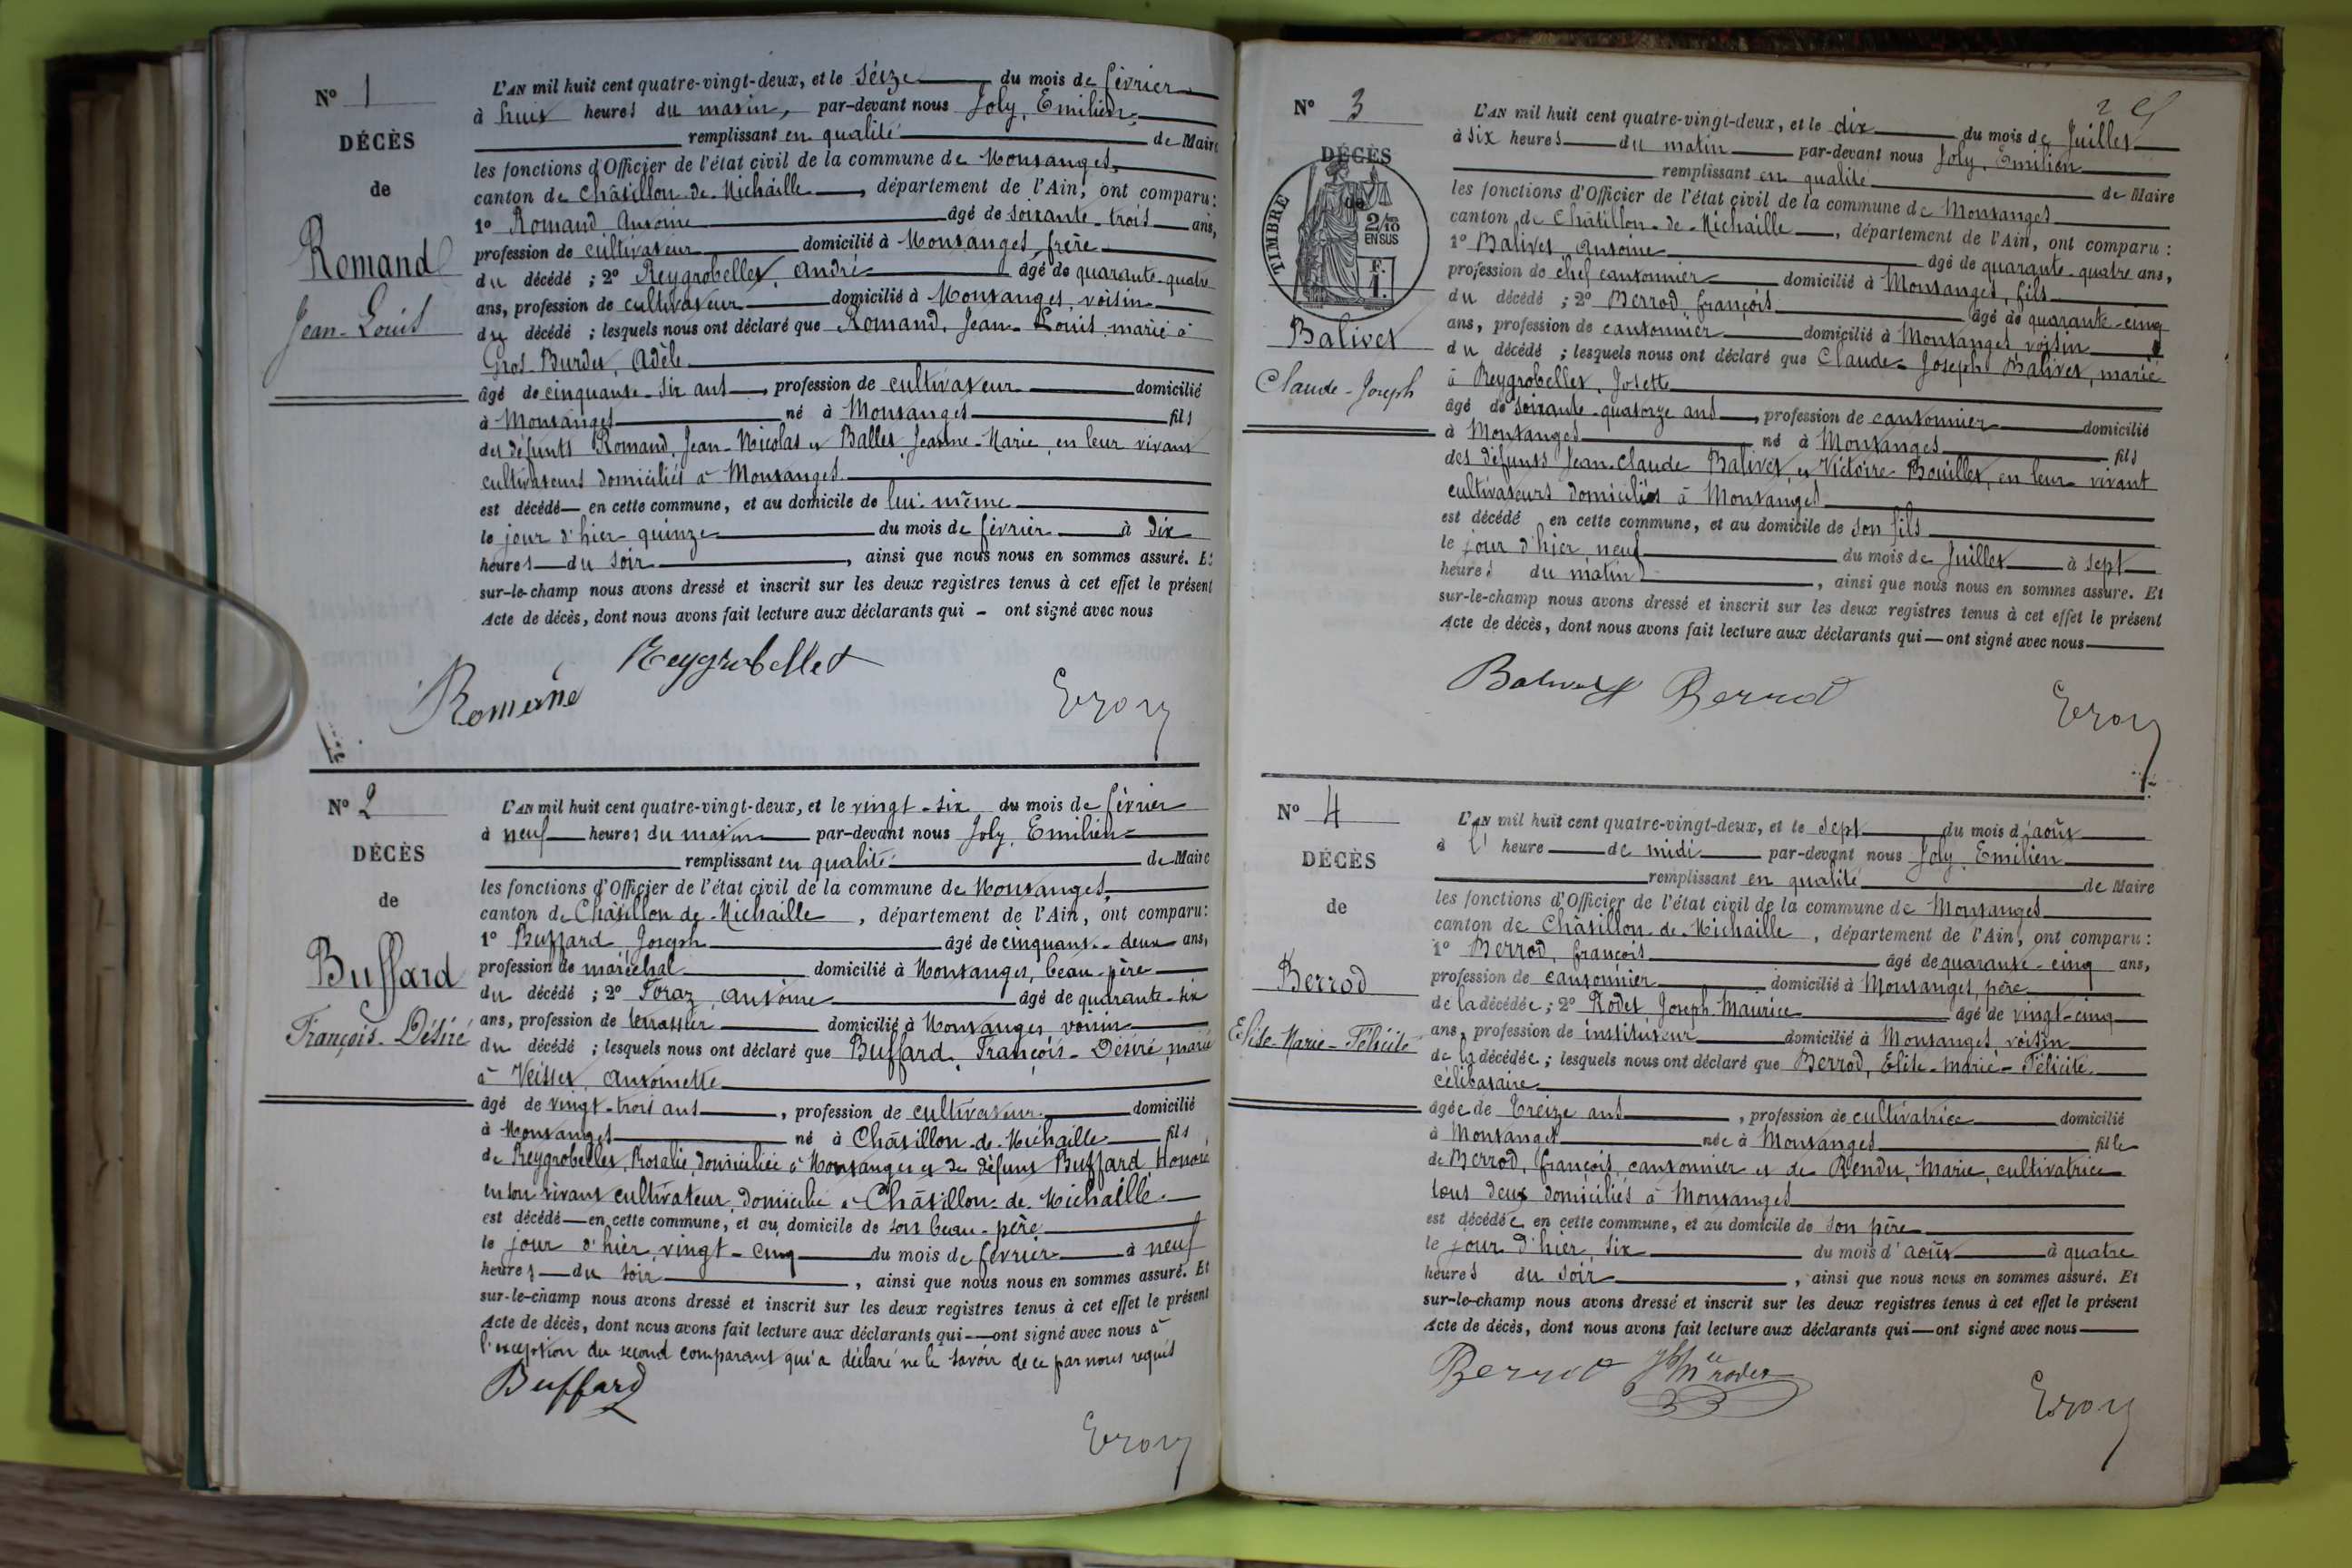 N° 1
DÉCÈS
de
Romand
Jean-Louis
L'AN mil huit cent quatre-vingt-deux, et le seize du mois de février
à huit heures du matin, par-devant nous Joly, Emilien,
remplissant en qualité de Maire
les fonctions d'Officier de l'état civil de la commune de Montanges,
canton de Châtillon-de-Michaille, département de l'Ain, ont comparu:
1° Romand Antoine âgé de soixante-trois ans,
profession de cultivateur domicilié à Montanges, frère
du décédé ; 2° Reygrobellet, André âgé de quarante-quatre
ans, profession de cultivateur domicilié à Montanges, voisin
du décédé ; lesquels nous ont déclaré que Romand, Jean-Louis marié à
Gros-Burdet, Adèle
âgé de cinquante-six ans, profession de cultivateur domicilié
à Montanges né à Montanges fils
des défunts Romand, Jean-Nicolas et Ballet, Jeanne-Marie, en leur vivant
cultivateurs domiciliés à Montanges
est décédé en cette commune, et au domicile de lui-même
le jour d'hier quinze du mois de février à dix
heures du soir, ainsi que nous nous en sommes assuré. Et
sur-le-champ nous avons dressé et inscrit sur les deux registres tenus à cet effet le présent
Acte de décès, dont nous avons fait lecture aux déclarants qui - ont signé avec nous
Reygrobellet
N° 2
DÉCÈS
de
Buffard
François-Désiré
L'AN mil huit cent quatre-vingt-deux, et le vingt-six du mois de février
à neuf heures du matin par-devant nous Joly, Emilien
remplissant en qualité de Maire
les fonctions d'Officier de l'état civil de la commune de Montanges,
canton de Châtillon de Michaille, département de l'Ain, ont comparu:
1° Buffard, Joseph âgé de cinquante-deux ans,
profession de maréchal domicilié à Montanges, beau-père
du décédé ; 2° Foraz, Antoine âgé de quarante-six
ans, profession de terrassier domicilié à Montanges voisin
du décédé ; lesquels nous ont déclaré que Buffard, François-Désiré marié
à Veisset, Antoinette
âgé de vingt-trois ans, profession de cultivateur domicilié
à Montanges né à Châtillon-de-Michaille fils
de Reygrobellet, Rosalie, domiciliée à Montanges et de défunt Buffard Honoré
en son vivant cultivateur, domicilié à Châtillon-de-Michaille
est décédé en cette commune, et au domicile de son beau-père
le jour d'hier, vingt-cinq du mois de février à neuf
heures du soir, ainsi que nous nous en sommes assuré. Et
sur-le-champ nous avons dressé et inscrit sur les deux registres tenus à cet effet le présent
Acte de décès, dont nous avons fait lecture aux déclarants qui ont signé avec nous à
l'exception du second comparant qui a déclaré ne le savoir de ce par nous requis
Buffard
N° 3
DÉCÈS
de
TIMBRE
2/10
EN SUS
F.
1.
Balivet
Claude-Joseph
L'AN mil huit cent quatre-vingt-deux, et le dix du mois de Juillet
à six heures du matin par-devant nous Joly, Emilien
remplissant en qualité de Maire
les fonctions d'Officier de l'état civil de la commune de Montanges
canton de Châtillon-de-Michaille, département de l'Ain, ont comparu :
1° Balivet Antoine âgé de quarante-quatre ans,
profession de chef cantonnier domicilié à Montanges, fils
du décédé ; 2° Berrod François âgé de quarante-cinq
ans, profession de cantonnier domicilié à Montanges voisin
du décédé ; lesquels nous ont déclaré que Claude-Joseph Balivet, marié
à Reygrobellet, Josette
âgé de soixante-quatorze ans, profession de cantonnier domicilié
à Montanges né à Montanges fils
des défunts Jean-Claude Balivet et Victoire Bouillet, en leur vivant
cultivateurs domiciliés à Montanges
est décédé en cette commune, et au domicile de son fils
le jour d'hier, neuf du mois de Juillet à sept
heures du matin, ainsi que nous nous en sommes assuré. Et
sur-le-champ nous avons dressé et inscrit sur les deux registres tenus à cet effet le présent
Acte de décès, dont nous avons fait lecture aux déclarants qui ont signé avec nous
Berrod
N° 4
DÉCÈS
de
Berrod
Elise-Marie-Félicité
L'AN mil huit cent quatre-vingt-deux, et le sept du mois d'août
à l' heure de midi par-devant nous Joly, Emilien
remplissant en qualité de Maire
les fonctions d'Officier de l'état civil de la commune de Montanges
canton de Châtillon-de-Michaille, département de l'Ain, ont comparu :
1° Berrod, François âgé de quarante-cinq ans,
profession de cantonnier domicilié à Montanges, père
de la décédée ; 2° Rodet, Joseph Maurice âgé de vingt-cinq
ans, profession de instituteur domicilié à Montanges voisin
de la décédée ; lesquels nous ont déclaré que Berrod, Elise-Marie-Félicité
célibataire
âgée de treize ans, profession de cultivatrice domicilié
à Montanges née à Montanges fille
de Berrod, François, cantonnier et de Rendu, Marie, cultivatrice
tous deux domiciliés à Montanges
est décédée en cette commune, et au domicile de son père
le jour d'hier, six du mois d'août à quatre
heures du soir, ainsi que nous nous en sommes assuré. Et
sur-le-champ nous avons dressé et inscrit sur les deux registres tenus à cet effet le présent
Acte de décès, dont nous avons fait lecture aux déclarants qui ont signé avec nous
Berrod